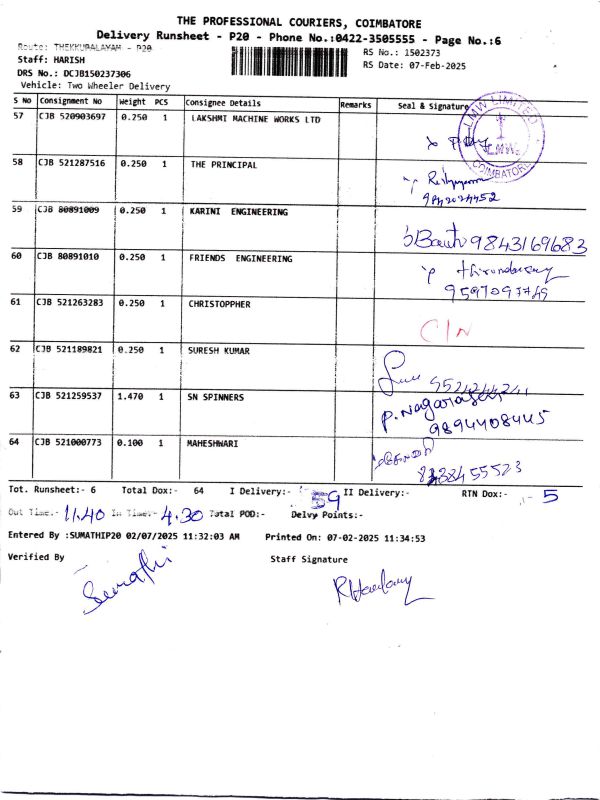 THE PROFESSIONAL COURIERS, COIMBATORE
Delivery Runsheet - P20 - Phone No.:0422-3505555 - Page No.:6
Route: THEKKUPALAYAM - P20
RS No.: 1502373
Staff: HARISH
RS Date: 07-Feb-2025
DRS No.: DCJB150237306
Vehicle: Two Wheeler Delivery
S No Consignment No Weight PCS Consignee Details Remarks Seal & Signature
57 CJB 520903697 0.250 1 LAKSHMI MACHINE WORKS LTD
LMW LIMITED
LMW
COIMBATORE
58 CJB 521287516 0.250 1 THE PRINCIPAL
59 CJB 80891009 0.250 1 KARINI ENGINEERING
9843169683
60 CJB 80891010 0.250 1 FRIENDS ENGINEERING
61 CJB 521263283 0.250 1 CHRISTOPPHER
C/N
62 CJB 521189821 0.250 1 SURESH KUMAR
63 CJB 521259537 1.470 1 SN SPINNERS
P. Nagaraj
9894408445
64 CJB 521000773 0.100 1 MAHESHWARI
Tot. Runsheet:- 6 Total Dox:- 64 I Delivery:- 59 II Delivery:- RTN Dox:- 5
Out Time:- 11.40 In Time:- 4.30 Total POD:- Delvy Points:-
Entered By :SUMATHIP20 02/07/2025 11:32:03 AM Printed On: 07-02-2025 11:34:53
Verified By Staff Signature
Sumathi